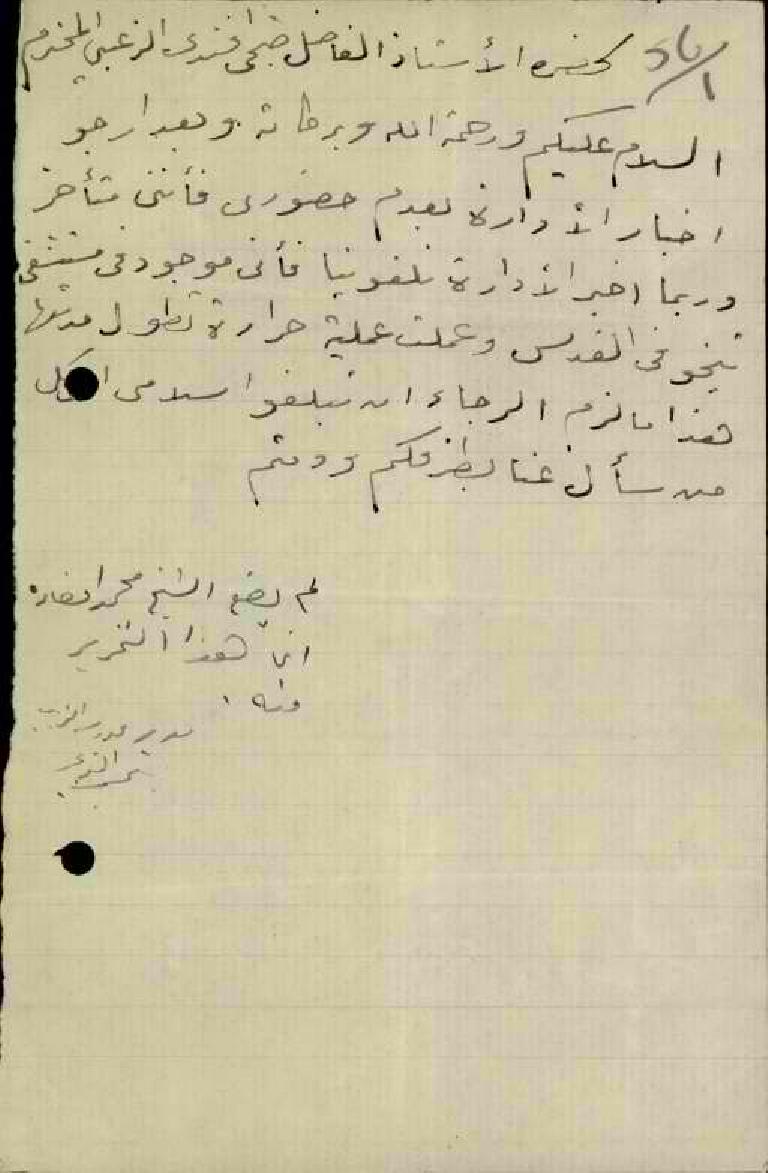 لحضرة الأستاذ الفاضل صبحي افندي الزعبي المحترم
السلام عليكم ورحمة الله وبركاته وبعد ارجو
اخبار الأدارة بعدم حضوري فأنني متأخر
وربما اخبر الأدارة تلفونيا فأني موجود في مستشفى
في القدس وعملت عملية حرارة تطول مدتها
هذا ما لزم الرجاء ان تبلغوا سلامي الكل
من سأل عنا بطرفكم ودمتم
لم يضع الشيخ محمد امضاءه
انما هذا التحرير
منه .
مدير